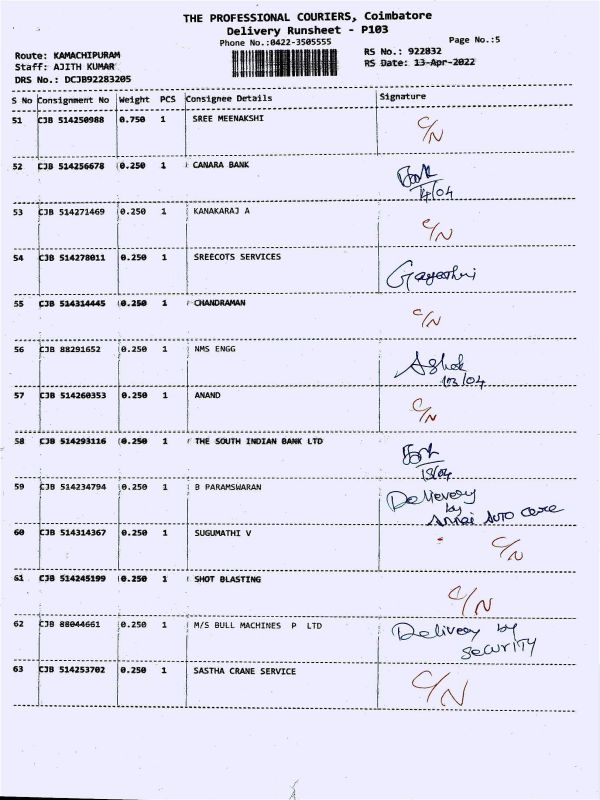 THE PROFESSIONAL COURIERS, Coimbatore
Delivery Runsheet - P103
Phone No.:0422-3505555
Page No.:5
Route: KAMACHIPURAM
RS No.: 922832
Staff: AJITH KUMAR
RS Date: 13-Apr-2022
DRS No.: DCJB92283205
S No Consignment No Weight PCS Consignee Details Signature
51 CJB 514250988 0.750 1 SREE MEENAKSHI C/N
52 CJB 514256678 0.250 1 CANARA BANK
14/04
53 CJB 514271469 0.250 1 KANAKARAJ A C/N
54 CJB 514278011 0.250 1 SREECOTS SERVICES Gayathri
55 CJB 514314445 0.250 1 CHANDRAMAN C/N
56 CJB 88291652 0.250 1 NMS ENGG Ashok
57 CJB 514260353 0.250 1 ANAND C/N
58 CJB 514293116 0.250 1 THE SOUTH INDIAN BANK LTD
59 CJB 514234794 0.250 1 B PARAMSWARAN Delievery
by
AUTO care
60 CJB 514314367 0.250 1 SUGUMATHI V C/N
61 CJB 514245199 0.250 1 SHOT BLASTING C/N
62 CJB 88044661 0.250 1 M/S BULL MACHINES P LTD Delivery by
SECURITY
63 CJB 514253702 0.250 1 SASTHA CRANE SERVICE C/N